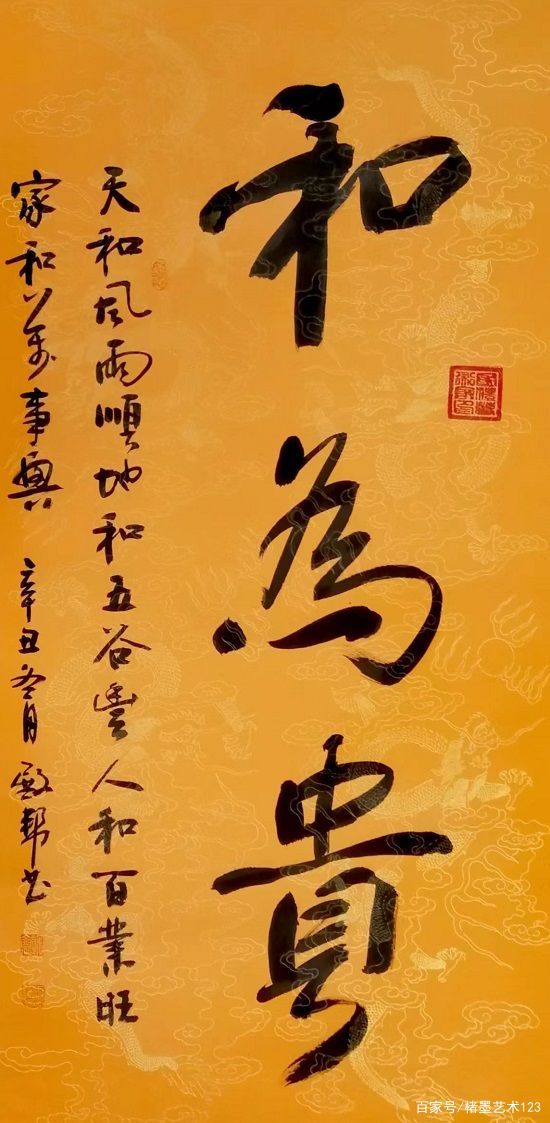 和為貴
天和風雨順地和五谷豐人和百業旺
家和萬事興 辛丑冬月 殿邦书
百家号/楮墨艺术123